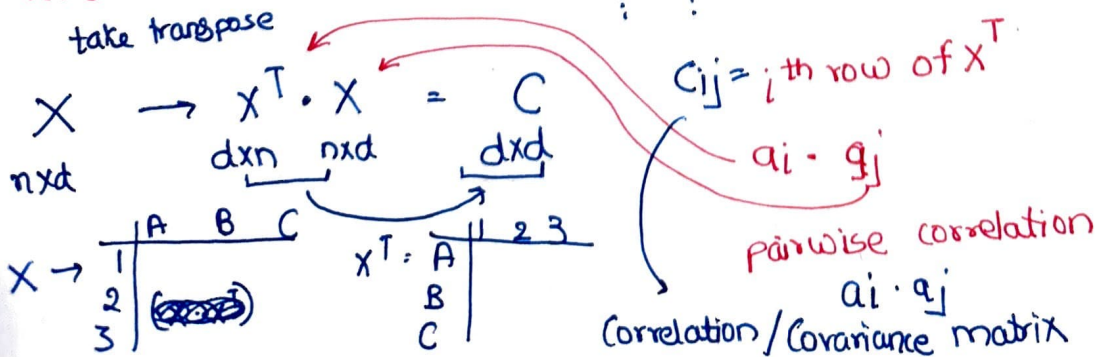 take transpose
X → X^T . X = C
n×d
d×n n×d d×d
Cij = ith row of X^T
ai . qj
pairwise correlation
ai . qj
Correlation/Covariance matrix
X →
A B C
1
2
3
X^T :
1 2 3
A
B
C